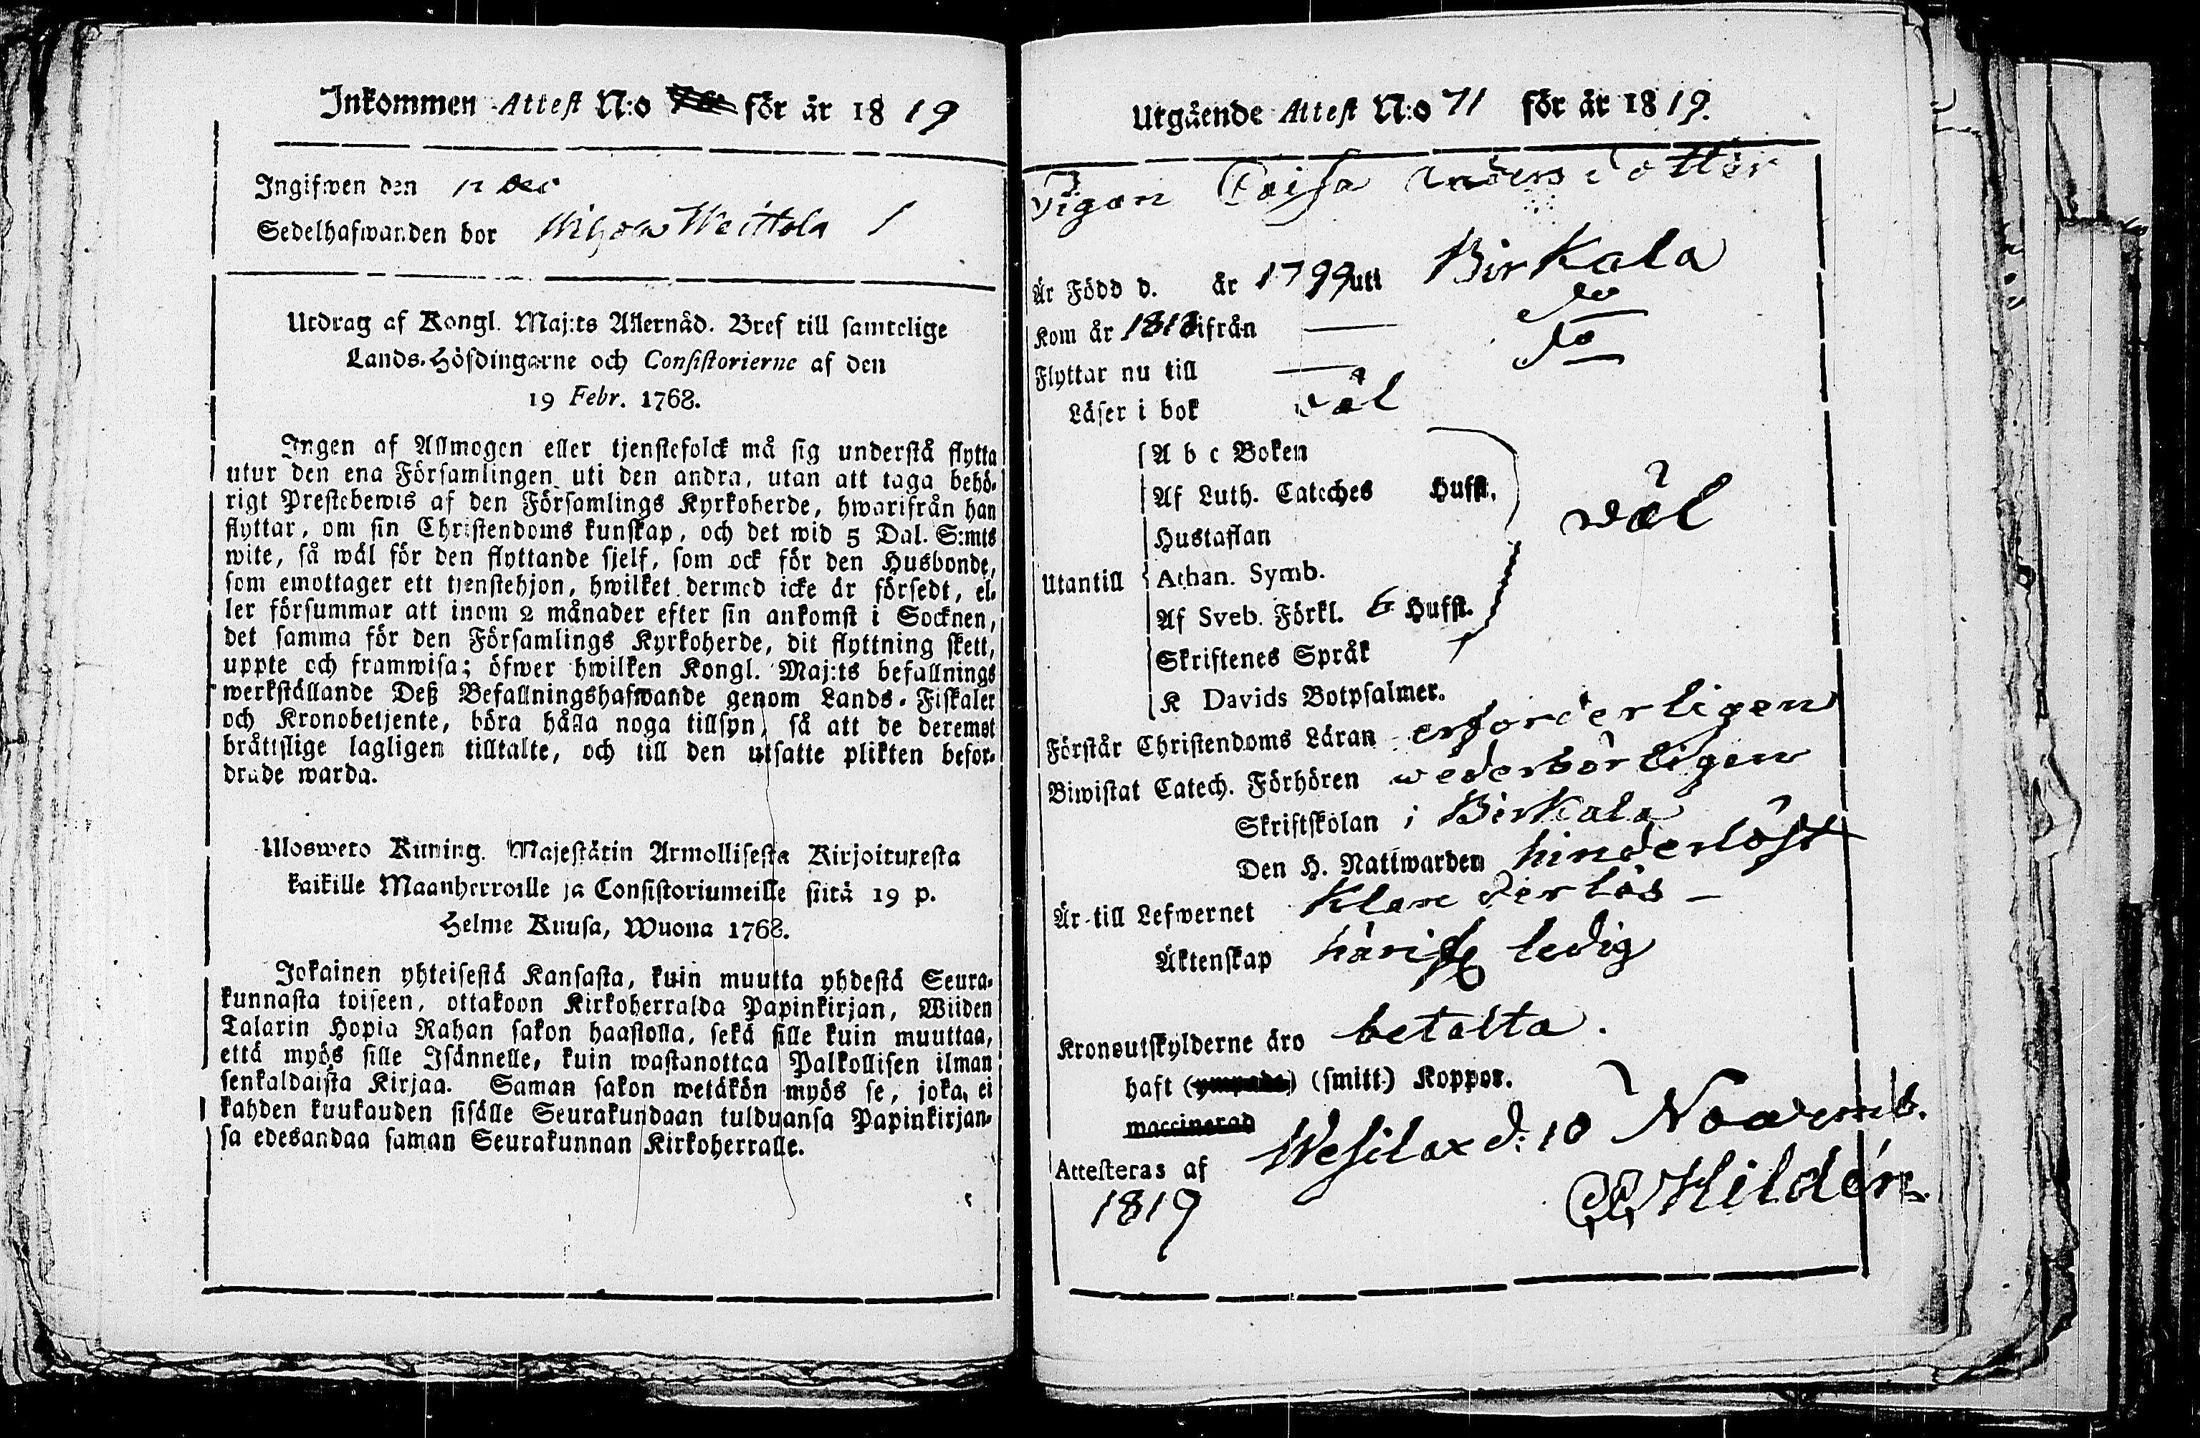 Inkommen Attest N:o för år 1819
Ingifwen den 12 Dec
Sedelhafwanden bor Wihola Weittola
Utdrag af Kongl. Maj:ts Allernåd. Bref till samtelige
Lands-Höfdingarne och Consistorierne af den
19 Febr. 1768.
Ingen af Allmogen eller tjenstefolck må sig understå flytta
utur den ena Församlingen uti den andra, utan att taga behö-
rigt Prestebewis af den Församlings Kyrkoherde, hwarifrån han
flyttar, om sin Christendoms kunskap, och det wid 5 Dal. S:mts
wite, så wäl för den flyttande sjelf, som ock för den Husbonde,
som emottager ett tjenstehjon, hwilket dermed icke är försedt, el-
ler försummar att inom 2 månader efter sin ankomst i Socknen,
det samma för den Församlings Kyrkoherde, dit flyttning skett,
uppte och framwisa; öfwer hwilken Kongl. Maj:ts befallnings
werkställande Deß Befallningshafwande genom Lands-Fiskaler
och Kronobetjente, böra hålla noga tillsyn, så att de deremot
bråttslige lagligen tilltalte, och till den utsatte plikten befor-
drade warda.
Ulosweto Kuning. Majestätin Armollisesta Kirjoituxesta
kaikille Maanherroille ja Consistoriumeille siitä 19 p.
Helme Kuusa, Wuona 1768.
Jokainen yhteisestä Kansasta, kuin muutta yhdestä Seura-
kunnasta toiseen, ottakoon Kirkoherralda Papinkirjan, Wiiden
Talarin Hopia Rahan sakon haastolla, sekä sille kuin muuttaa,
että myös sille Isännelle, kuin wastanottaa Palkollisen ilman
senkaldaista Kirjaa. Saman sakon wetäkön myös se, joka ei
kahden kuukauden sisälle Seurakundaan tulduansa Papinkirjan-
sa edesandaa saman Seurakunnan Kirkoherralle.
Utgående Attest N:o 71 för år 1819.
Pigan Caisa Andersdotter
Är Född d. år 1799 utt Birkala
Kom år 1818 ifrån — do
Flyttar nu till — do
Läser i bok väl
A b c Boken
Af Luth. Cateches Hufst.
Hustaflan
väl
Utantill Athan. Symb.
Af Sveb. Förkl. 6 Hufst.
Skriftenes Språk
K Davids Botpsalmer.
Förstår Christendoms Läran erforderligen
Biwistat Catech. Förhören wederbörligen
Skriftskolan i Birkala
Den H. Nattwarden hinderlöst
Är till Lefwernet klanderlös —
Äktenskap härifr ledig
Kronoutskylderne äro betalta.
haft (ympade) (smitt-) Koppor.
waccinerad
Attesteras af Wesilax d: 10 Novemb.
1819
Hildén